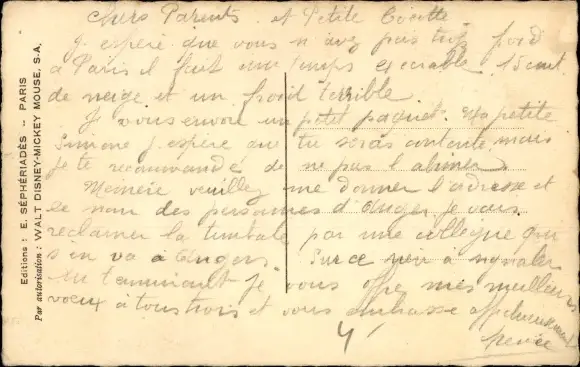 Chers Parents et Petite Cocotte
J espère que vous n avez pas trop froid
à Paris il fait un temps execrable 15 cent
de neige et un froid terrible.
Je vous envoie un petit paquet. Ma petite
Simone j espère que tu seras contente mais
je te recommande de ne pas l abimer
Mémère veuillez me donner l'adresse et
le nom des personnes d'Anger je vais
réclamer la timbale par une collègue qui
s'en va à Angers. Sur ce rien à signaler
En terminant je vous offre mes meilleurs
voeux à tous trois et vous embrasse affectueusement
Editions : E. SÉPHÉRIADÈS — PARIS
Par autorisation : WALT DISNEY-MICKEY MOUSE, S.A.